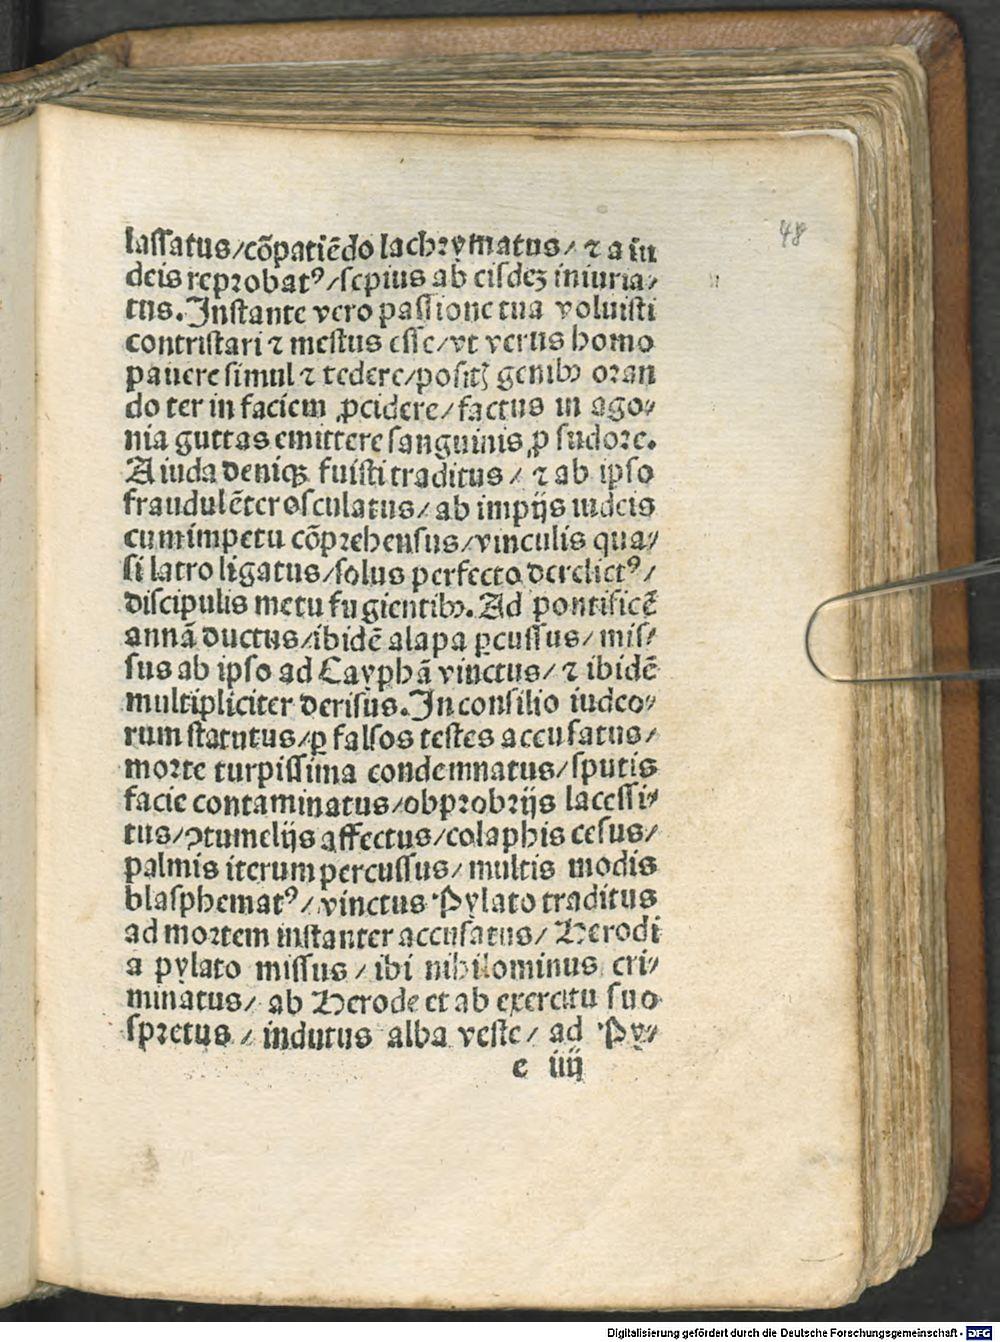 48
lassatus/cõpatiẽdo lachrymatus/ ⁊ a iu
deis reprobatꝰ/sepius ab eisdeꝫ iniuria⸗
tus. Instante vero passione tua voluisti
contristari ⁊ mestus esse/vt verus homo
pauere simul ⁊ tedere/positꝭ genibꝫ oran
do ter in faciem ꝓcidere/factus in ago⸗
nia guttas emittere sanguinis ꝓ sudore.
A iuda deniqꝫ fuisti traditus/ ⁊ ab ipso
fraudulẽter osculatus/ab impijs iudeis
cum impetu cõprehensus/vinculis qua⸗
si latro ligatus/solus perfecto derelictꝰ/
discipulis metu fugientibꝫ. Ad pontificẽ
annã ductus/ibidẽ alapa ꝑcussus/mis⸗
sus ab ipso ad Cayphã vinctus/ ⁊ ibidẽ
multipliciter derisus. In consilio iudeo⸗
rum statutus/ꝑ falsos testes accusatus/
morte turpissima condemnatus/sputis
facie contaminatus/obprobrijs lacessi⸗
tus/ꝯtumelijs affectus/colaphis cesus/
palmis iterum percussus/multis modis
blasphematꝰ/vinctus Pylato traditus
ad mortem instanter accusatus/Herodi
a pylato missus/ibi nihilominus cri⸗
minatus/ ab Herode et ab exercitu suo
spretus/indutus alba veste/ ad Py⸗
e iiij
Digitalisierung gefördert durch die Deutsche Forschungsgemeinschaft - DFG